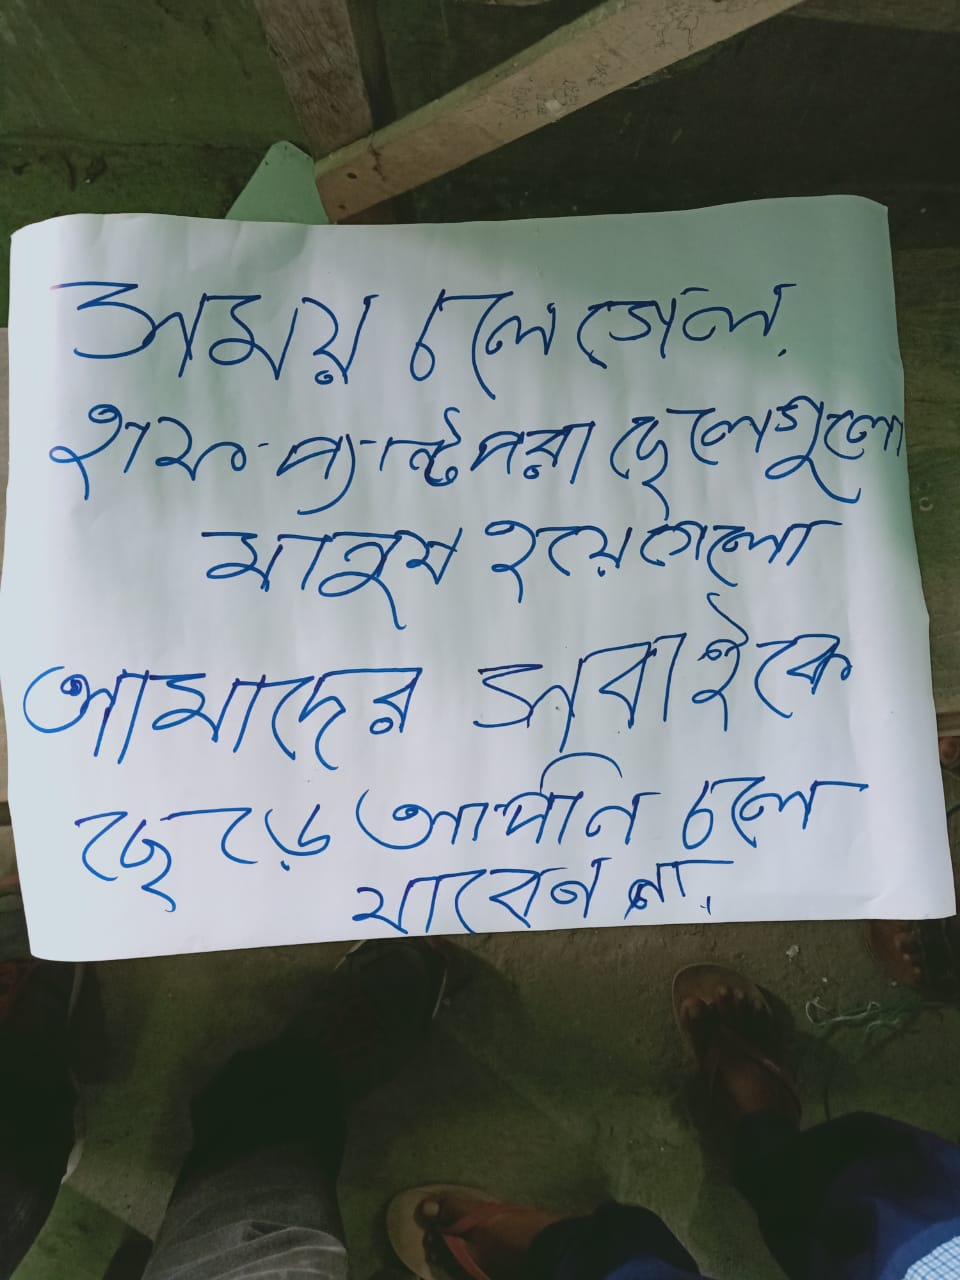 সময় চলে গেল.
হাফ-প্যান্ট পরা ছেলেগুলো
মানুষ হয়ে গেলো
আমাদের সবাইকে
ছেড়ে আপনি চলে
যাবেন না.